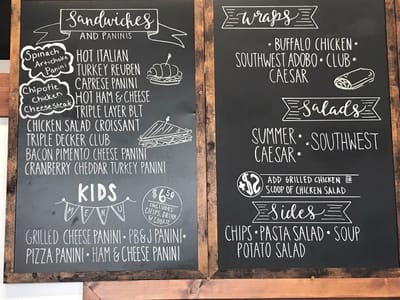 Sandwiches
AND PANINIS
Spinach
Artichoke
Panini
Chipotle
Chicken
Cheesesteak
HOT ITALIAN
TURKEY REUBEN
CAPRESE PANINI
HOT HAM & CHEESE
TRIPLE LAYER BLT
CHICKEN SALAD CROISSANT
TRIPLE DECKER CLUB
BACON PIMENTO CHEESE PANINI
CRANBERRY CHEDDAR TURKEY PANINI
KIDS
MENU
INCLUDES
CHIPS, DRINK,
& COOKIE
GRILLED CHEESE PANINI • PB&J PANINI •
PIZZA PANINI • HAM & CHEESE PANINI
Wraps
• BUFFALO CHICKEN •
SOUTHWEST ADOBO • CLUB •
CAESAR
Salads
SUMMER •
CAESAR • • SOUTHWEST
+$2
ADD GRILLED CHICKEN OR
SCOOP OF CHICKEN SALAD
Sides
CHIPS • PASTA SALAD • SOUP
POTATO SALAD